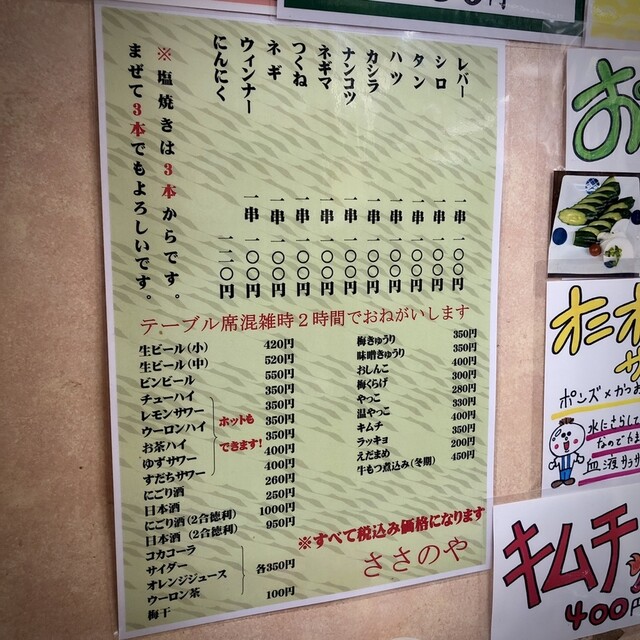 レバー 一串 一〇〇円
シロ 一串 一〇〇円
タン 一串 一〇〇円
ハツ 一串 一〇〇円
カシラ 一串 一〇〇円
ナンコツ 一串 一〇〇円
ネギマ 一串 一〇〇円
つくね 一串 一〇〇円
ネギ 一串 一〇〇円
ウィンナー 一串 一〇〇円
にんにく 一二〇円
※塩焼きは3本からです。
まぜて3本でもよろしいです。
テーブル席混雑時2時間でおねがいします
生ビール(小) 420円
生ビール(中) 520円
ビンビール 550円
チューハイ 350円
レモンサワー 350円
ウーロンハイ 350円
お茶ハイ 350円
ゆずサワー 400円
すだちサワー 400円
ホットも
できます!
にごり酒 260円
日本酒 250円
にごり酒(2合徳利) 1000円
日本酒(2合徳利) 950円
コカコーラ
サイダー
オレンジジュース
ウーロン茶
各350円
梅干 100円
梅きゅうり 350円
味噌きゅうり 350円
おしんこ 400円
梅くらげ 300円
やっこ 280円
温やっこ 330円
キムチ 400円
ラッキョ 350円
えだまめ 200円
牛もつ煮込み(冬期) 450円
※すべて税込み価格になります
ささのや
お
オニオ
サ
ポンズ×かつお
水にさらして
血液サラサ
キムチ
400円